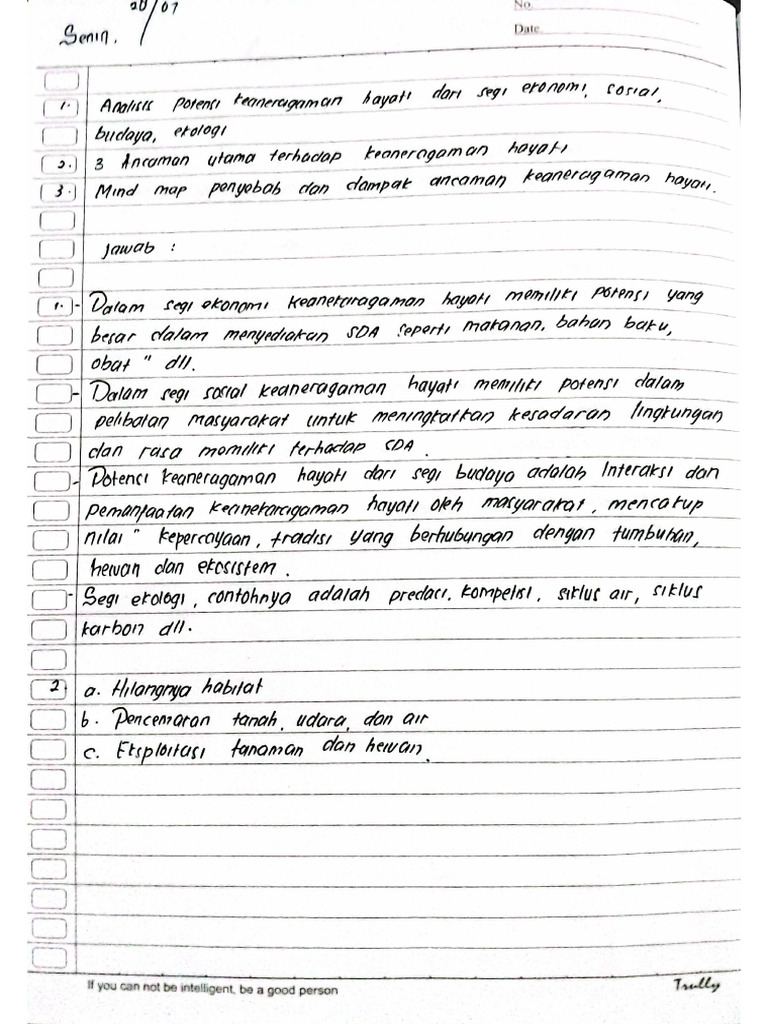 20/07
No.
Senin,
Date.
1. Analisis potensi keaneragaman hayati dari segi ekonomi, sosial,
budaya, ekologi
2. 3 Ancaman utama terhadap keaneragaman hayati
3. Mind map penyebab dan dampak ancaman keaneragaman hayati.
Jawab :
1. - Dalam segi ekonomi keanekaragaman hayati memiliki potensi yang
besar dalam menyediakan SDA seperti makanan, bahan baku,
obat " dll.
- Dalam segi sosial keaneragaman hayati memiliki potensi dalam
pelibatan masyarakat untuk meningkatkan kesadaran lingkungan
dan rasa memiliki terhadap SDA.
- Potensi keaneragaman hayati dari segi budaya adalah Interaksi dan
pemanfaatan keanekaragaman hayati oleh masyarakat, mencakup
nilai " kepercayaan, tradisi yang berhubungan dengan tumbuhan,
hewan dan ekosistem.
- Segi ekologi, contohnya adalah predasi, kompetisi, siklus air, siklus
karbon dll.
2 a. Hilangnya habitat
b. Pencemaran tanah, udara, dan air
c. Eksploitasi tanaman dan hewan.
If you can not be intelligent, be a good person
Trully